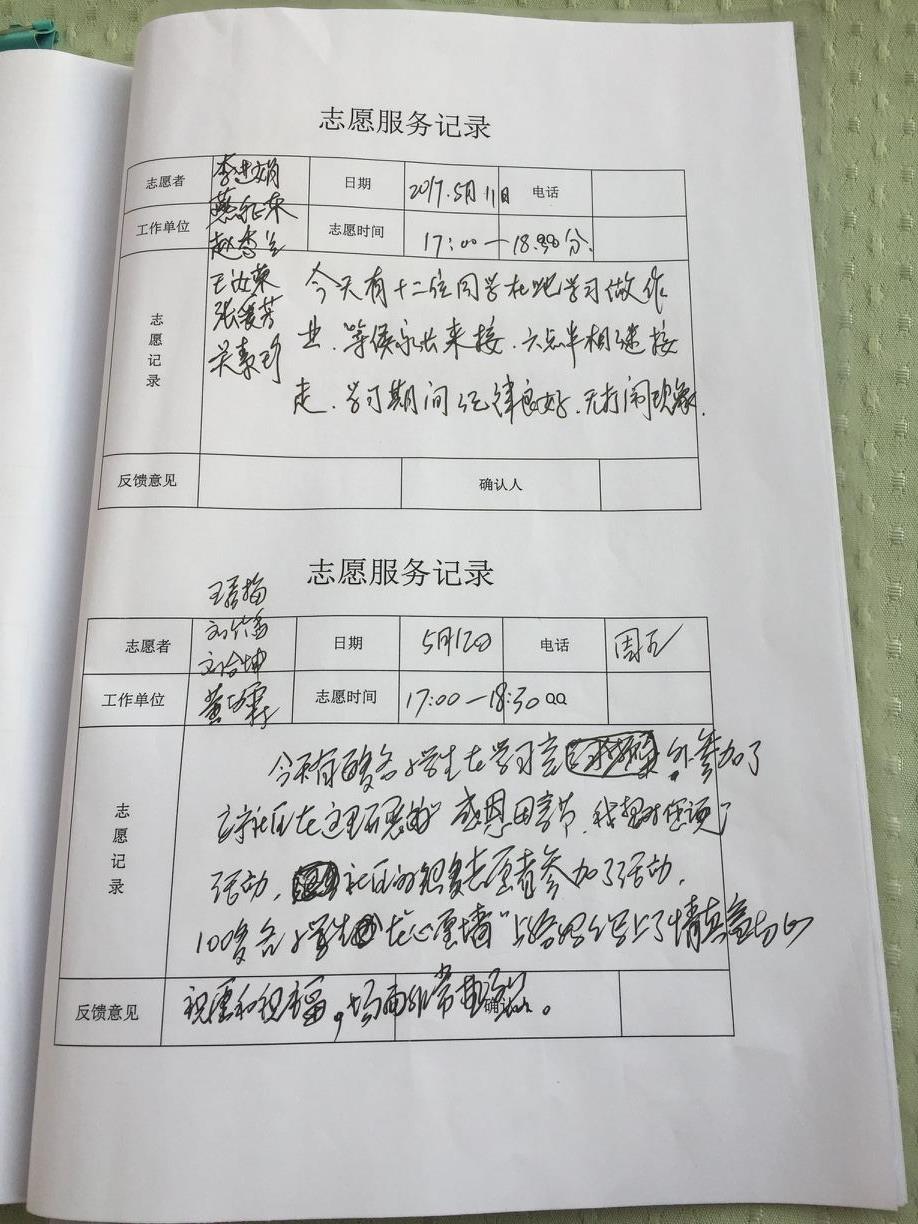 志愿服务记录
志愿者 李进娟 日期 2017.5月11日 电话
工作单位 赵秀兰 志愿时间 17:00—18:30分.
王汝荣
张爱芳
吴素珍
志愿记录
今天有十二位同学在此学习做作
业.等候家长来接.六点半相继接
走.学习期间纪律良好.无打闹现象.
反馈意见 确认人
志愿服务记录
志愿者 日期 5月12日 电话 周五
工作单位 志愿时间 17:00—18:30 QQ
志愿记录
今天有百多名小学生在学习之 外,参加了
社区在这里 感恩母亲节,我想对您说"
活动, 社区的很多志愿者参加了活动,
100多名小学生在"心愿墙"上给妈妈写上了情真意切的
反馈意见 祝愿和祝福,场面非常 。